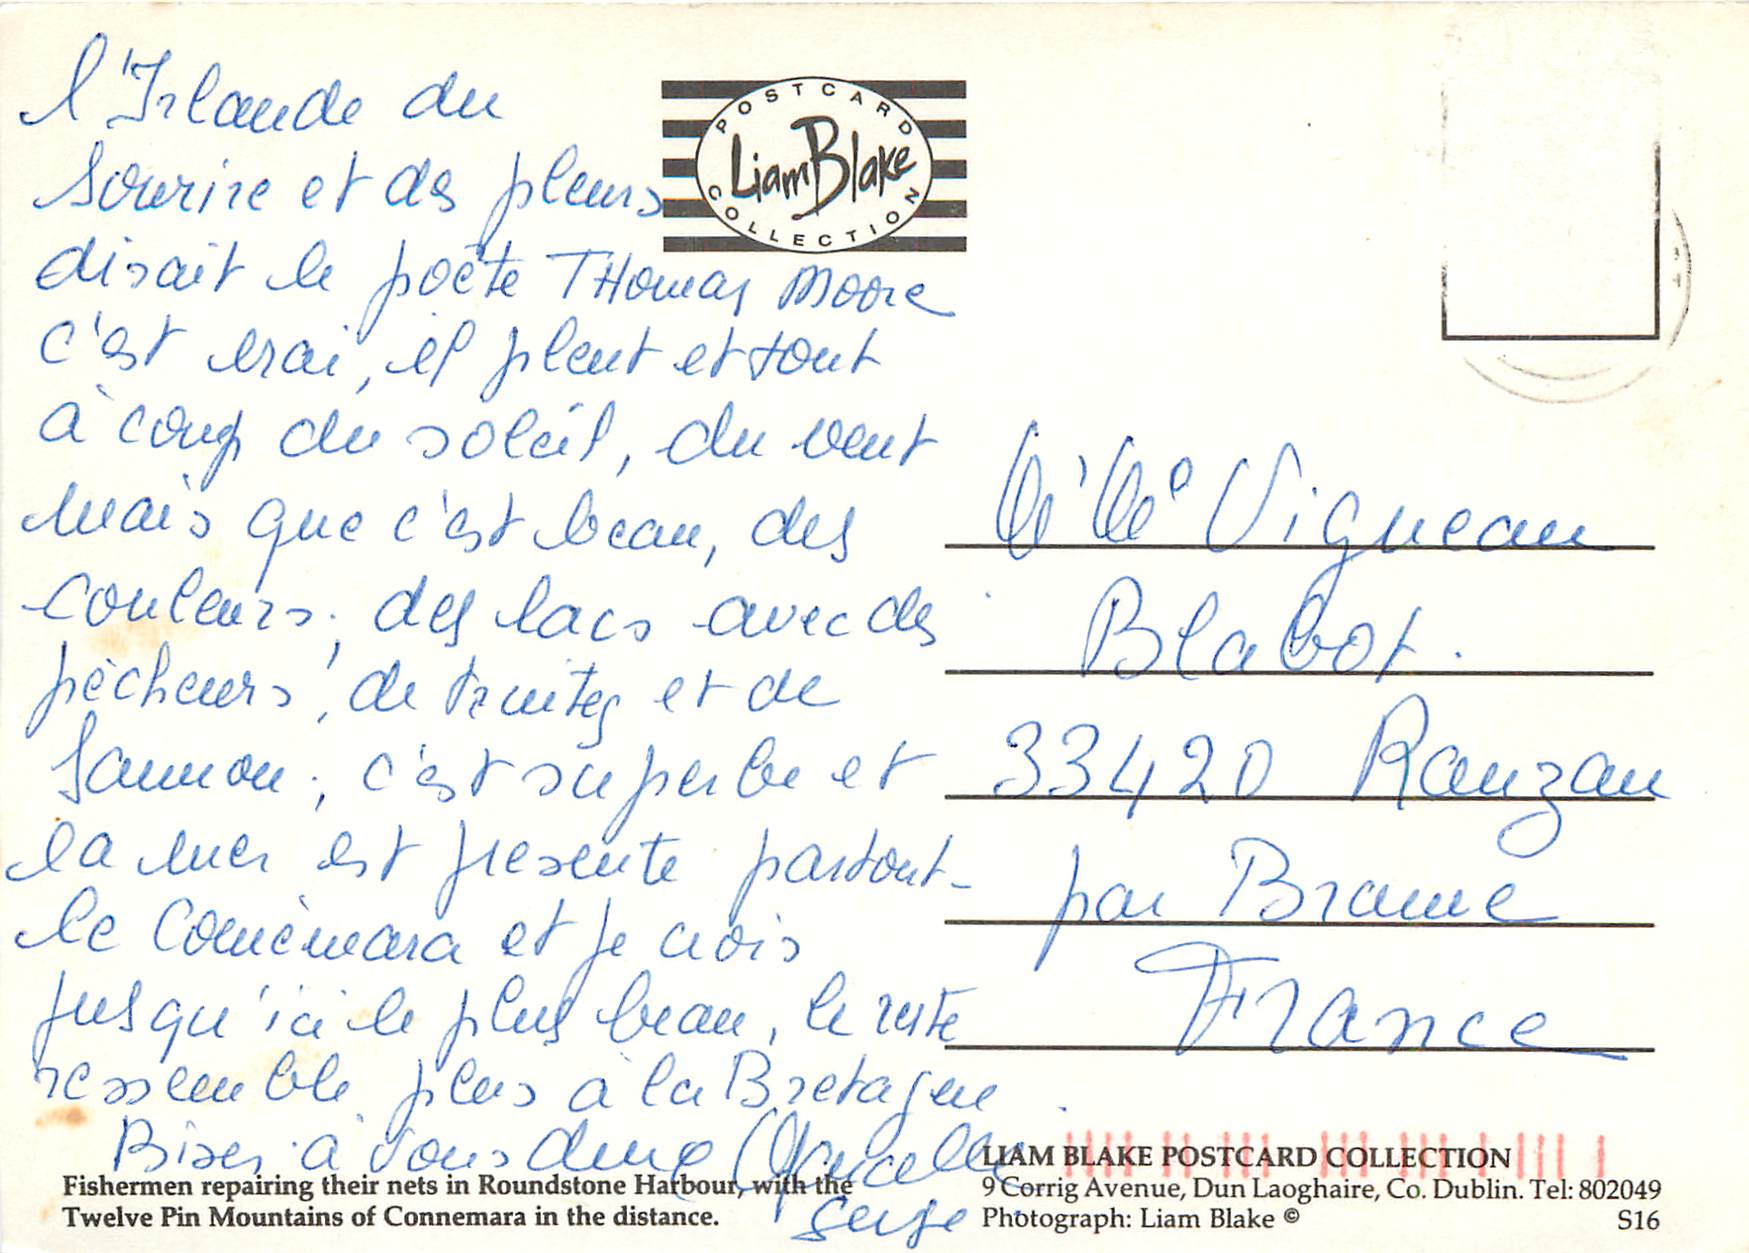 l'Irlande du
sourire et des pleurs
disait le poète THomas Moore
c'est vrai, il pleut et tout
à coup du soleil, du vent
mais que c'est beau, des
couleurs, des lacs avec des
pêcheurs, de truites et de
saumon, c'est superbe et
la mer est présente partout-
le Connémara et je crois
jusqu'ici le plus beau, le reste
ressemble plus à la Bretagne
Bises à vous deux Marcelle
Serge
POSTCARD
Liam Blake
COLLECTION
Vigneau
Blabot.
33420 Rauzan
par Branne
France
Fishermen repairing their nets in Roundstone Harbour, with the
Twelve Pin Mountains of Connemara in the distance.
LIAM BLAKE POSTCARD COLLECTION
9 Corrig Avenue, Dun Laoghaire, Co. Dublin. Tel: 802049
Photograph: Liam Blake ©
S16